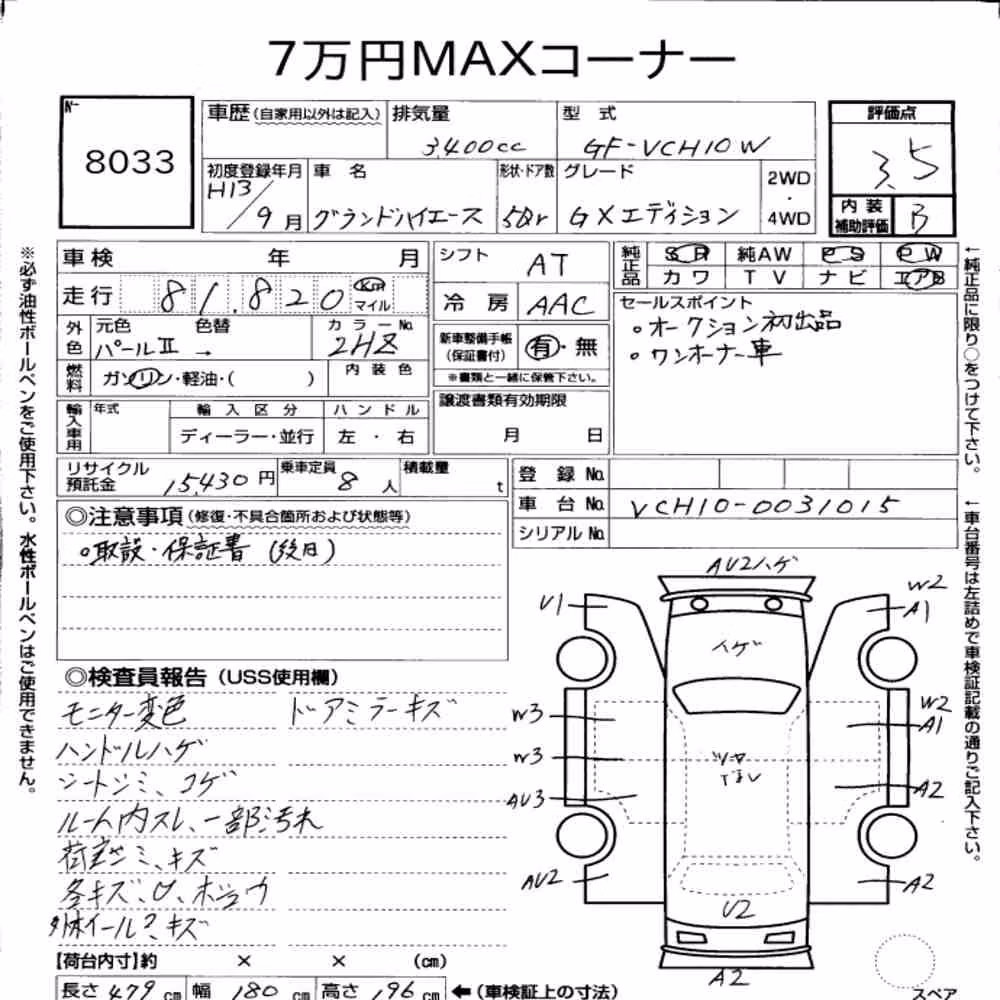 7万円MAXコーナー
No.
8033
車歴(自家用以外は記入)
排気量
3,400cc
型 式
GF-VCH10W
評価点
3.5
内装補助評価
B
初度登録年月
H13/9月
車 名
グランドハイエース
形状・ドア数
5Dr
グレード
GXエディション
2WD
・
4WD
車検 年 月
走行 81,820 Km マイル
外色
元色 色替
パールⅡ →
カラーNo.
2HZ
燃料
ガソリン・軽油・( )
内装色
輸入車用
年式
輸入区分
ディーラー・並行
ハンドル
左・右
シフト
AT
冷房
AAC
新車整備手帳
(保証書付)
有・無
※書類と一緒に保管下さい。
譲渡書類有効期限
月 日
純正品
SR 純AW PS PW
カワ TV ナビ エアB
セールスポイント
○オークション初出品
○ワンオーナー車
リサイクル預託金
15,430円
乗車定員
8人
積載量
t
登録No.
車台No.
VCH10-0031015
シリアルNo.
◎注意事項(修復・不具合箇所および状態等)
○取説・保証書(後日)
◎検査員報告(USS使用欄)
モニター変色 ドアミラーキズ
ハンドルハゲ
シートシミ、コゲ
ルーム内スレ、一部汚れ
荷室シミ、キズ
各キズ、凹、ホシュウ
キズ
【荷台内寸】約 × × (cm)
長さ 479cm 幅 180cm 高さ 196cm ←(車検証上の寸法)
AU2ハゲ
U1
W2
A1
ハゲ
W3
W2
A1
W3
AU3
A2
AU2
A2
U2
A2
スペア
※必ず油性ボールペンをご使用下さい。水性ボールペンはご使用できません。
←純正品に限り○をつけて下さい。
←車台番号は左詰めで車検証記載の通りご記入下さい。